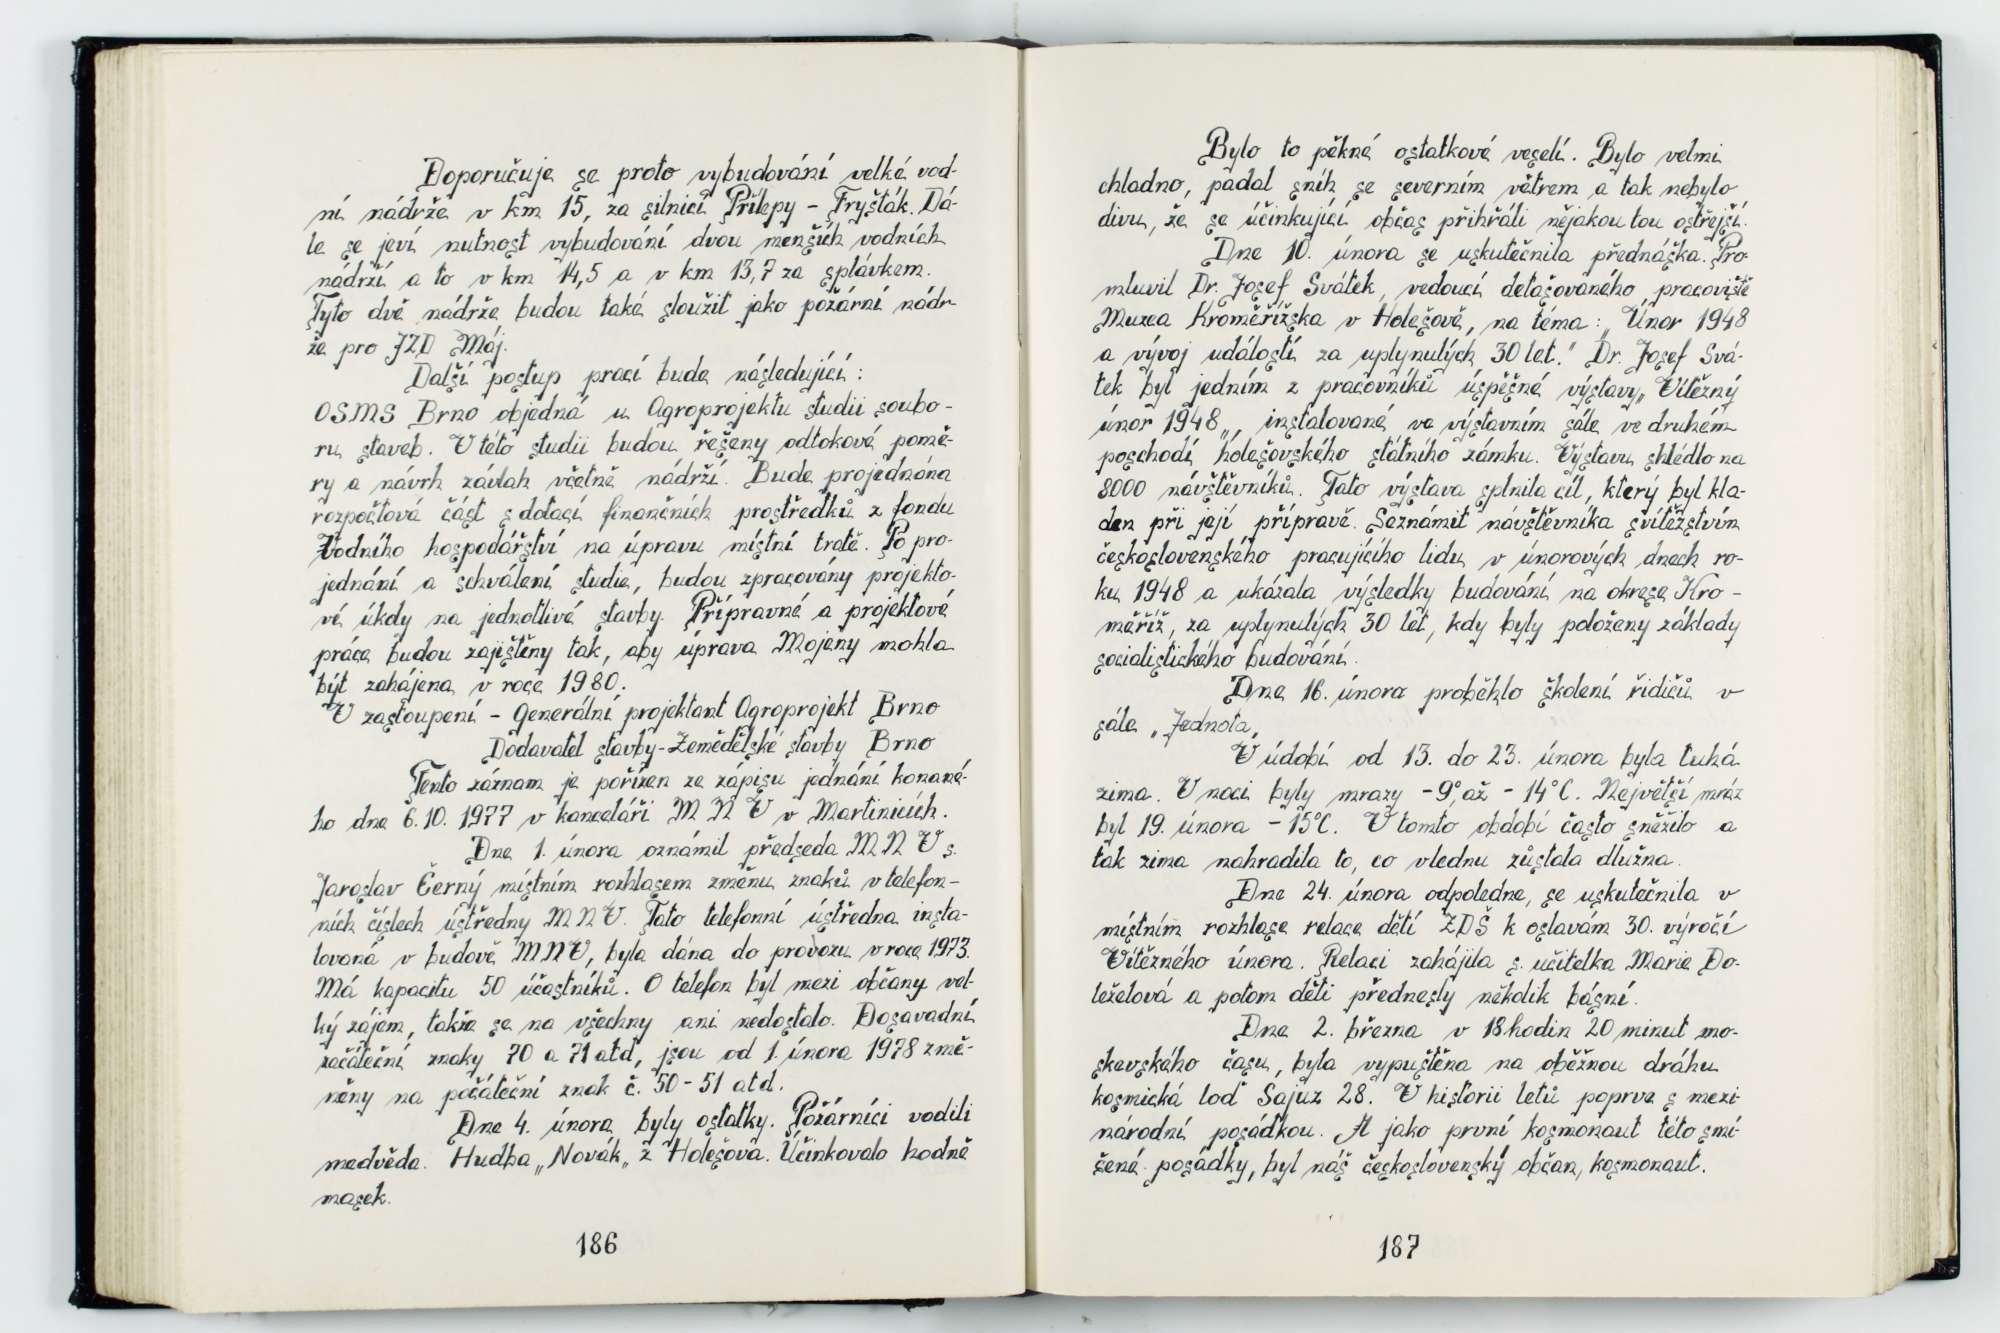 Doporučuje se proto vybudování velké vod-
ní nádrže v km 15, za silnicí Přílepy – Fryšták. Dá-
le se jeví nutnost vybudování dvou menších vodních
nádrží a to v km 14,5 a v km 13,7 za splávkem.
Tyto dvě nádrže budou také sloužit jako požární nádr-
že pro JZD Máj.
Další postup prací bude následující:
OSMS Brno objedná u Agroprojektu studii soubo-
ru staveb. V této studii budou řešeny odtokové pomě-
ry a návrh závlah včetně nádrží. Bude projednána
rozpočtová část s dotací finančních prostředků z fondu
Vodního hospodářství na úpravu místní tratě. Po pro-
jednání a schválení studie, budou zpracovány projekto-
vé úkoly na jednotlivé stavby. Přípravné a projektové
práce budou zajištěny tak, aby úprava Mojeny mohla
být zahájena v roce 1980.
V zastoupení – Generální projektant Agroprojekt Brno
Dodavatel stavby – Zemědělské stavby Brno
Tento záznam je pořízen ze zápisu jednání konané-
ho dne 6.10. 1977 v kanceláři M N V v Martinicích.
Dne 1. února oznámil předseda M N V s.
Jaroslav Černý místním rozhlasem změnu znaků v telefon-
ních číslech ústředny M N V. Tato telefonní ústředna insta-
lovaná v budově M N V, byla dána do provozu v roce 1973.
Má kapacitu 50 účastníků. O telefon byl mezi občany vel-
ký zájem, takže se na všechny ani nedostalo. Dosavadní
začáteční znaky 70 a 71 atd, jsou od 1. února 1978 změ-
něny na počáteční znak č. 50 - 51 atd.
Dne 4. února byly ostatky. Požárníci vodili
medvěda. Hudba „Novák„ z Holešova. Účinkovalo hodně
masek.
186
Bylo to pěkné ostatkové veselí. Bylo velmi
chladno, padal sníh se severním větrem a tak nebylo
divu, že se účinkující občas přihřáli nějakou tou ostřejší.
Dne 10. února se uskutečnila přednáška. Pro-
mluvil Dr. Josef Svátek, vedoucí detašovaného pracoviště
Muzea Kroměřížska v Holešově, na téma: „Únor 1948
a vývoj událostí za uplynulých 30 let." Dr. Josef Svá-
tek byl jedním z pracovníků úspěšné výstavy „Vítězný
únor 1948„, instalované ve výstavním sále ve druhém
poschodí holešovského státního zámku. Výstavu shlédlo na
8000 návštěvníků. Tato výstava splnila cíl, který byl kla-
den při její přípravě. Seznámit návštěvníka svítězstvím
československého pracujícího lidu v únorových dnech ro-
ku 1948 a ukázala výsledky budování na okrese Kro-
měříž, za uplynulých 30 let, kdy byly položeny základy
socialistického budování.
Dne 16. února proběhlo školení řidičů v
sále „Jednota„
V údobí od 13. do 23. února byla tuhá
zima. V noci byly mrazy -9°, až - 14°C. Největší mráz
byl 19. února - 15°C. V tomto období často sněžilo a
tak zima nahradila to, co v lednu zůstala dlužna.
Dne 24. února odpoledne, se uskutečnila v
místním rozhlase relace dětí ZDŠ k oslavám 30. výročí
Vítězného února. Relaci zahájila s. učitelka Marie Do-
leželová a potom děti přednesly několik básní.
Dne 2. března v 18 hodin 20 minut mo-
skevského času, byla vypuštěna na oběžnou dráhu
kosmická loď Sajuz 28. V historii letů poprve s mezi-
národní posádkou. A jako první kosmonaut této smí-
šené posádky, byl náš československý občan, kosmonaut.
187